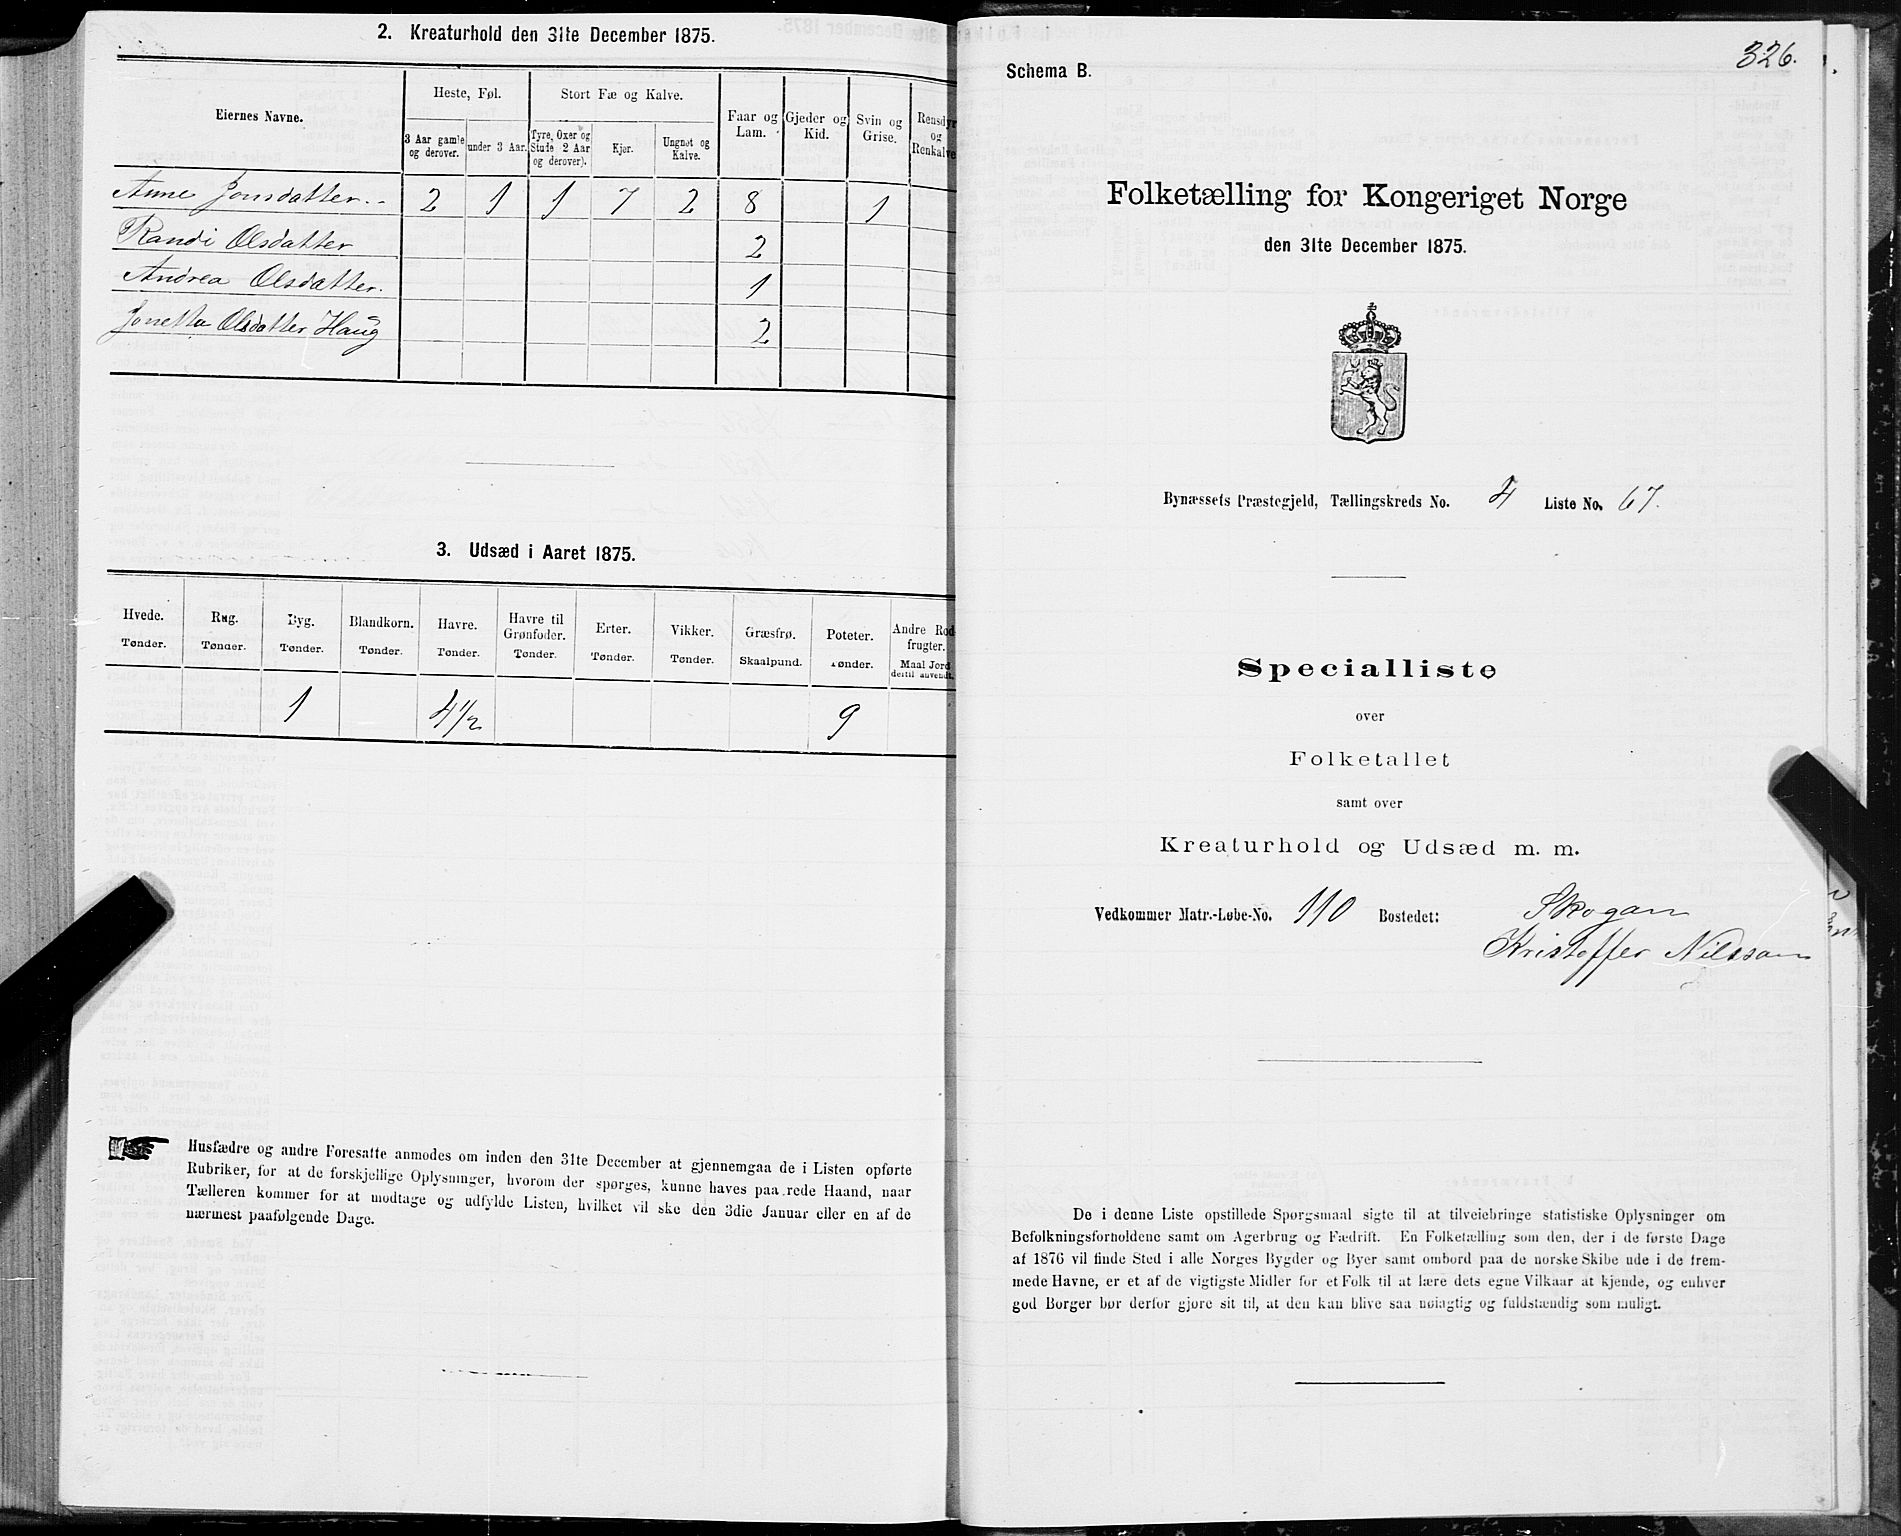 2. Kreaturhold den 31te December 1875.
Eiernes Navne.
Heste, Føl.
Stort Fæ og Kalve.
Faar og Lam.
Gjeder og Kid.
Svin og Grise.
Rensdyr og Renkalve
3 Aar gamle og derover.
under 3 Aar.
Tyre, Oxer og Stude 2 Aar og derover).
Kjør.
Ungnøt og Kalve.
Anne Jonsdatter.- 2 1 1 7 2 8 1
Randi Olsdatter 2
Andrea Olsdatter. 1
Jonetta Olsdatter Haug 2
3. Udsæd i Aaret 1875.
Hvede. Rug. Byg. Blandkorn. Havre. Havre til Grønfoder. Erter. Vikker. Græsfrø. Poteter. Andre Rodfrugter.
Tønder. Tønder. Tønder. Tønder. Tønder. Tønder. Tønder. Tønder. Skaalpund. Tønder. Maal Jord dertil anvendt.
1 4 1/2 9
Husfædre og andre Foresatte anmodes om inden den 31te December at gjennemgaa de i Listen opførte
Rubriker, for at de forskjellige Oplysninger, hvorom der spørges, kunne haves paa rede Haand, naar
Tælleren kommer for at modtage og udfylde Listen, hvilket vil ske den 3die Januar eller en af de
nærmest paafølgende Dage.
326.
Schema B.
Folketælling for Kongeriget Norge
den 31te December 1875.
Bynæssets Præstegjeld, Tællingskreds No. 4 Liste No. 67.
Specialliste
over
Folketallet
samt over
Kreaturhold og Udsæd m. m.
Vedkommer Matr.-Løbe-No. 110 Bostedet: Skogan
Kristoffer Nilssan
De i denne Liste opstillede Spørgsmaal sigte til at tilveiebringe statistiske Oplysninger om
Befolkningsforholdene samt om Agerbrug og Fædrift. En Folketælling som den, der i de første Dage
af 1876 vil finde Sted i alle Norges Bygder og Byer samt ombord paa de norske Skibe ude i de frem-
mede Havne, er et af de vigtigste Midler for et Folk til at lære dets egne Vilkaar at kjende, og enhver
god Borger bør derfor gjøre sit til, at den kan blive saa nøiagtig og fuldstændig som muligt.